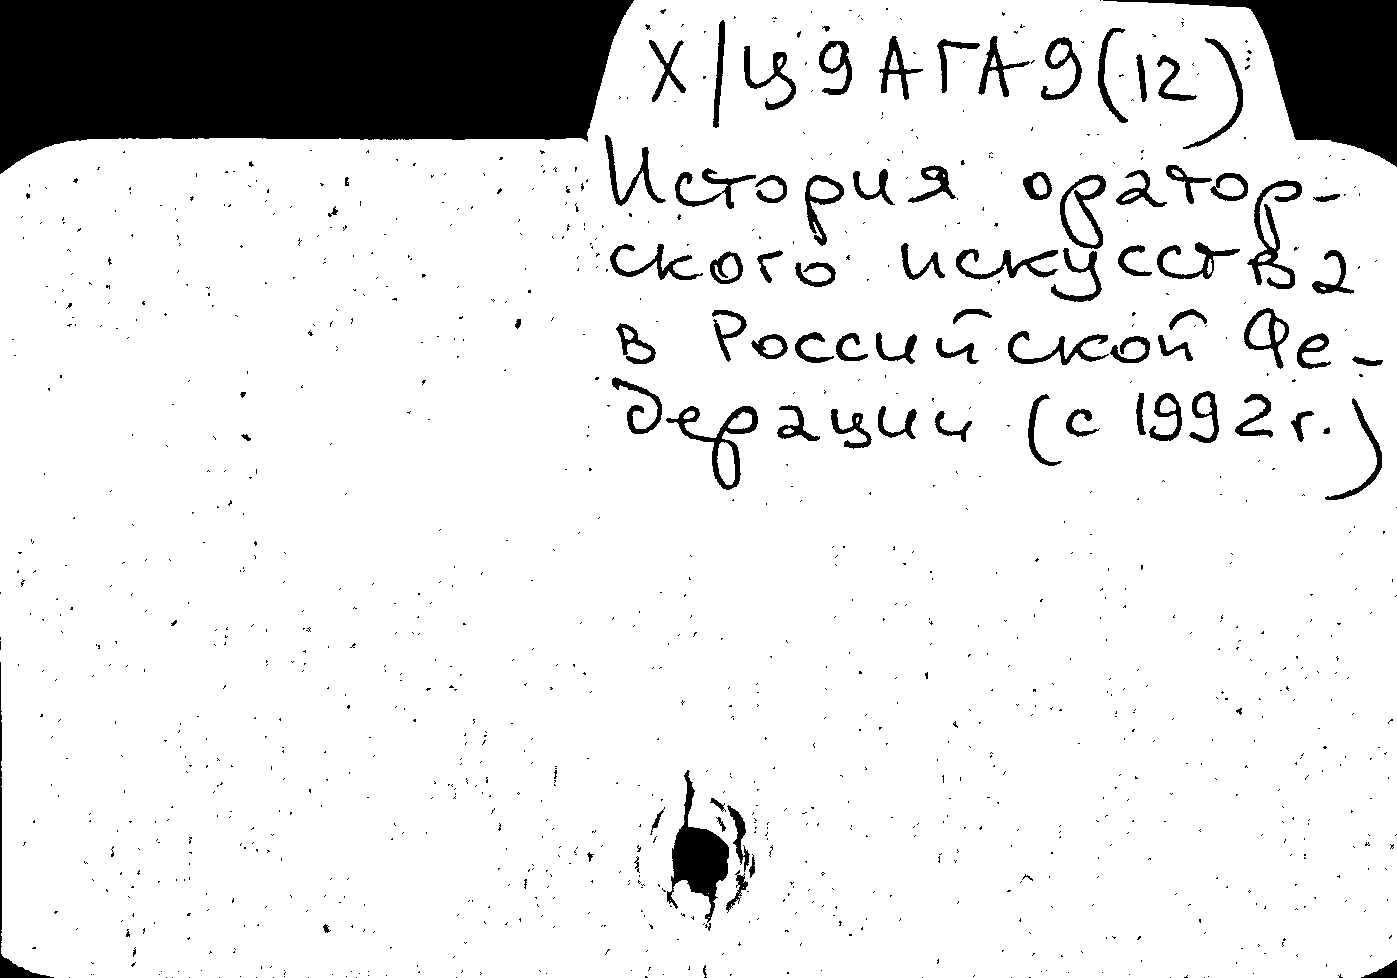 Х/Ц9АГА9(12)
История оратор-
ского искусства
в Российской Фе-
дерации (с 1992г.)